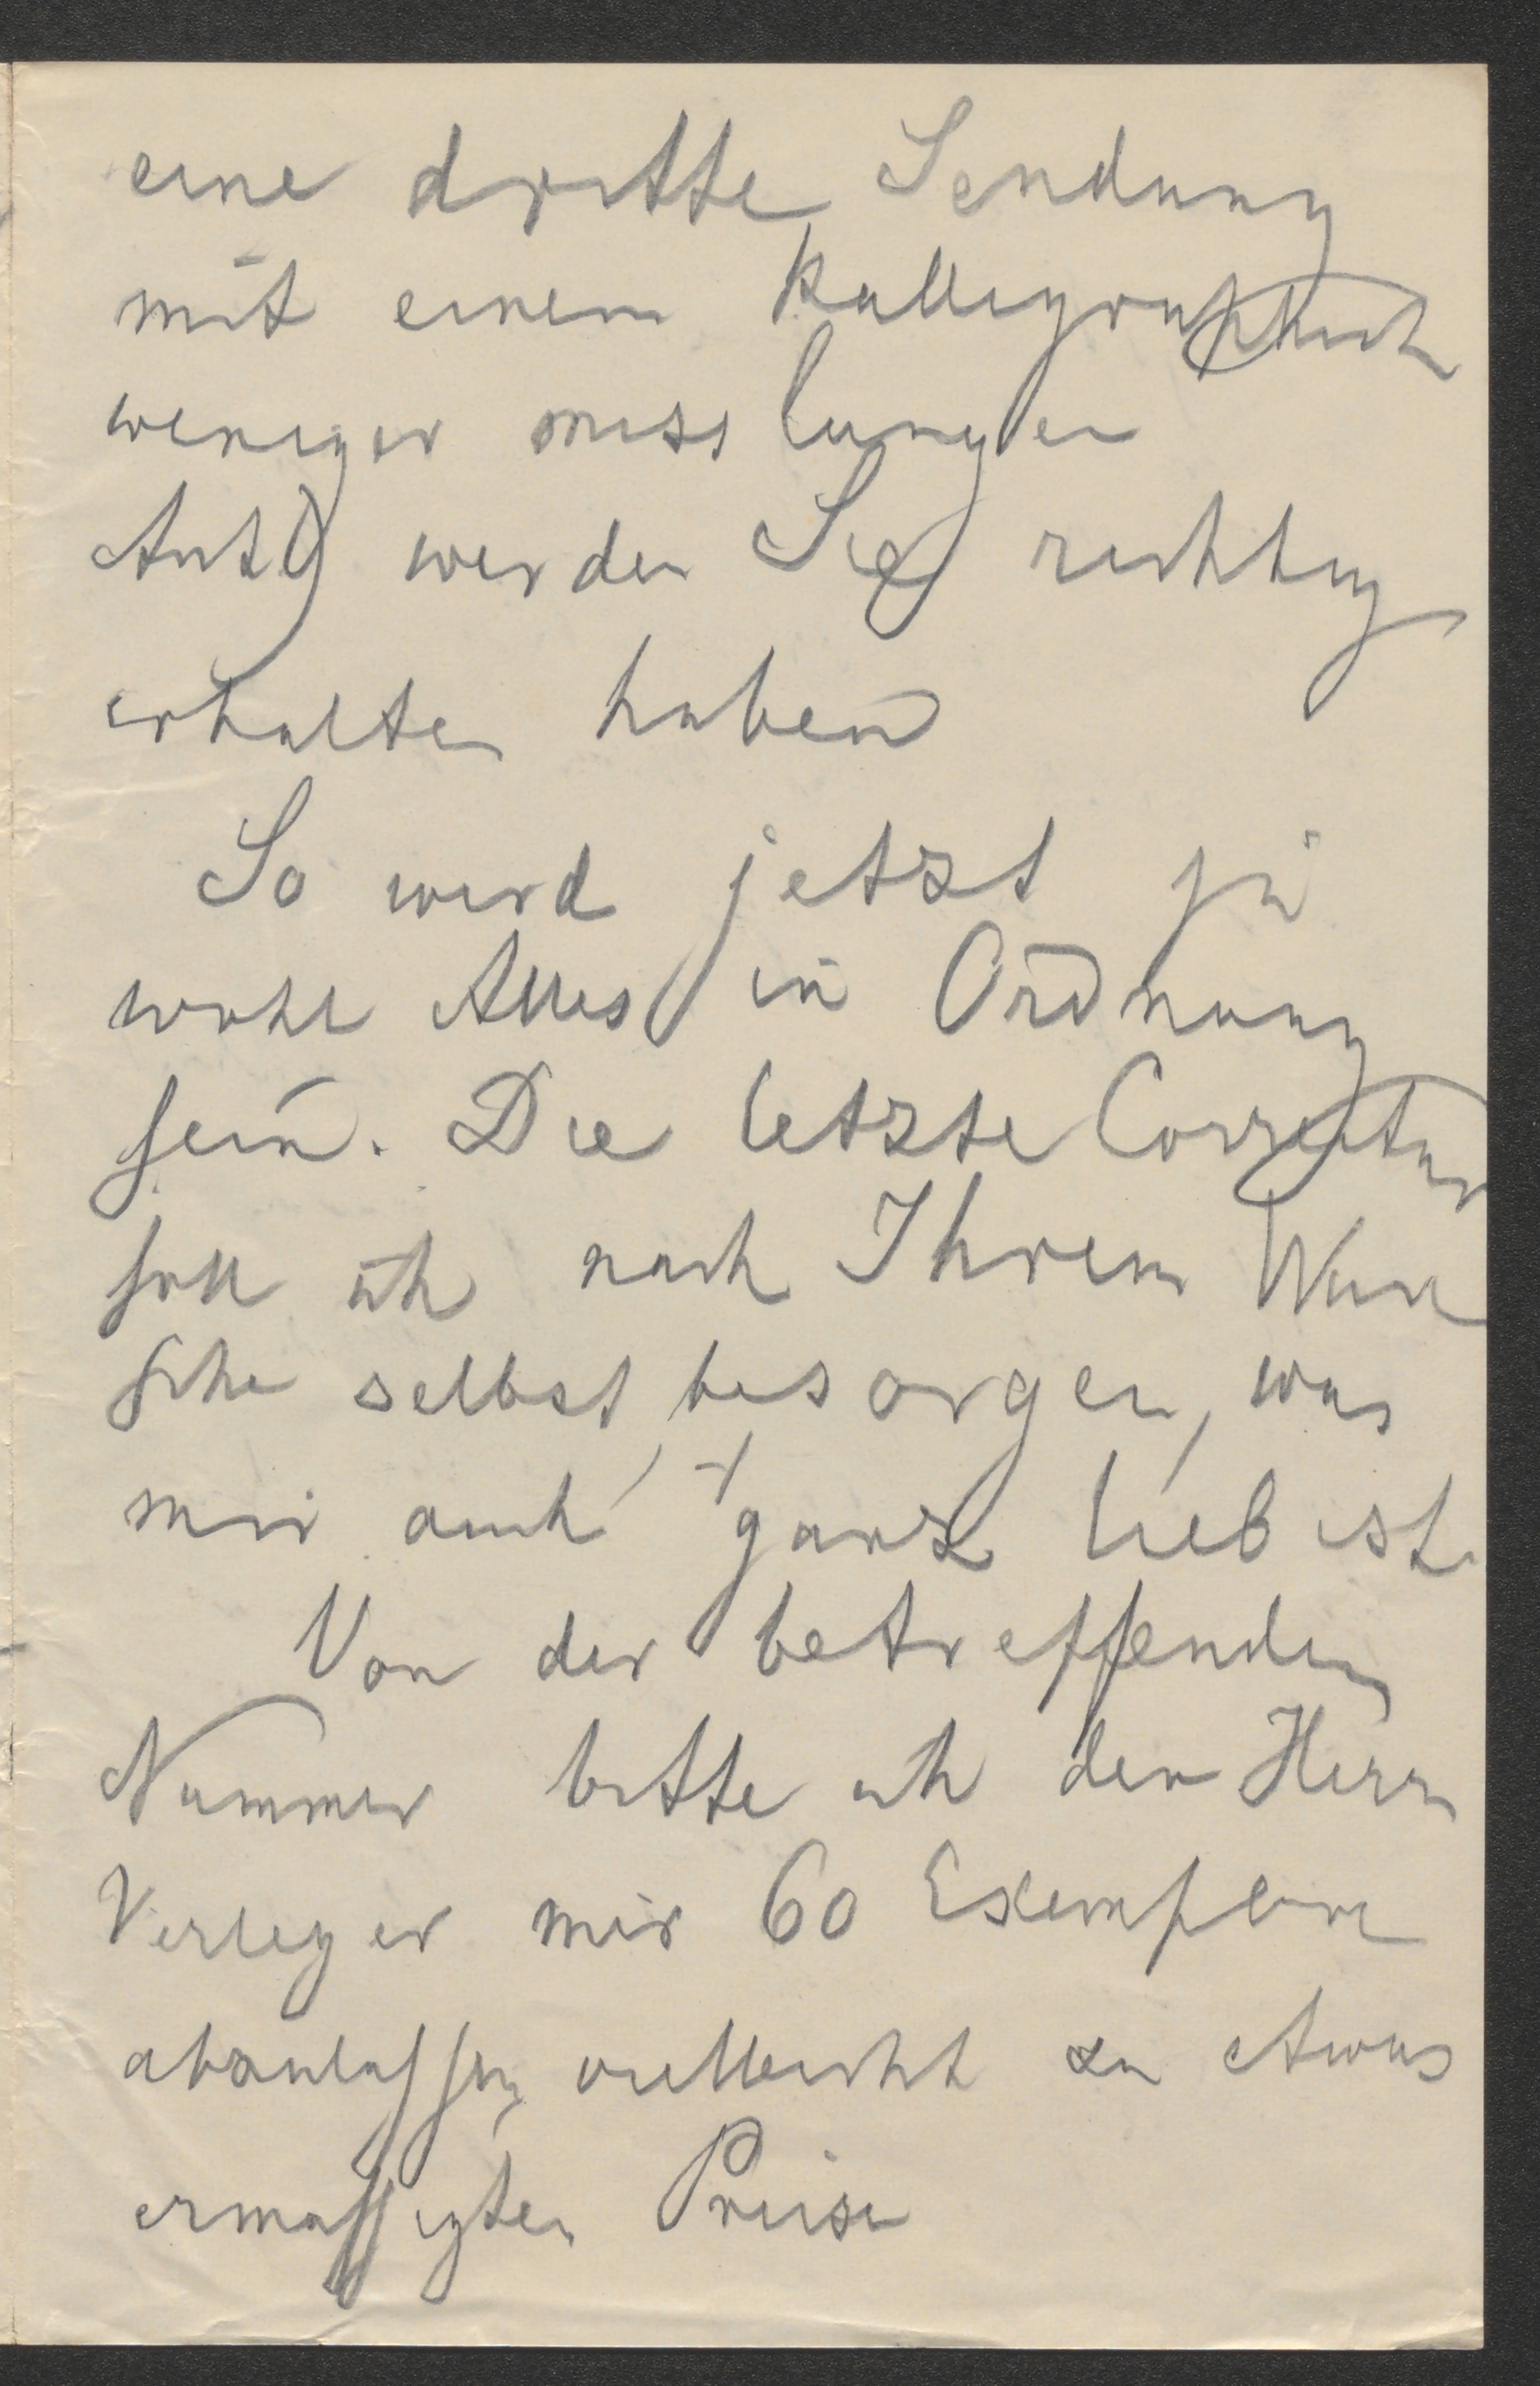 eine dritte Sendung
mit einem kalligraphisch
weniger misslungen
werden Sie richtig
erhalten haben
So wird jetzt ja
wohl Alles in Ordnung
sein. Die letzte Correctur
soll ich nach Ihrem Wun
sche selbst besorgen, was
mir auch ganz lieb ist.
Von der betreffenden
Nummer bitte ich den Herrn
Verleger mir 60 Exemplare
abzulassen, vielleicht zu etwas
ermässigten Preise